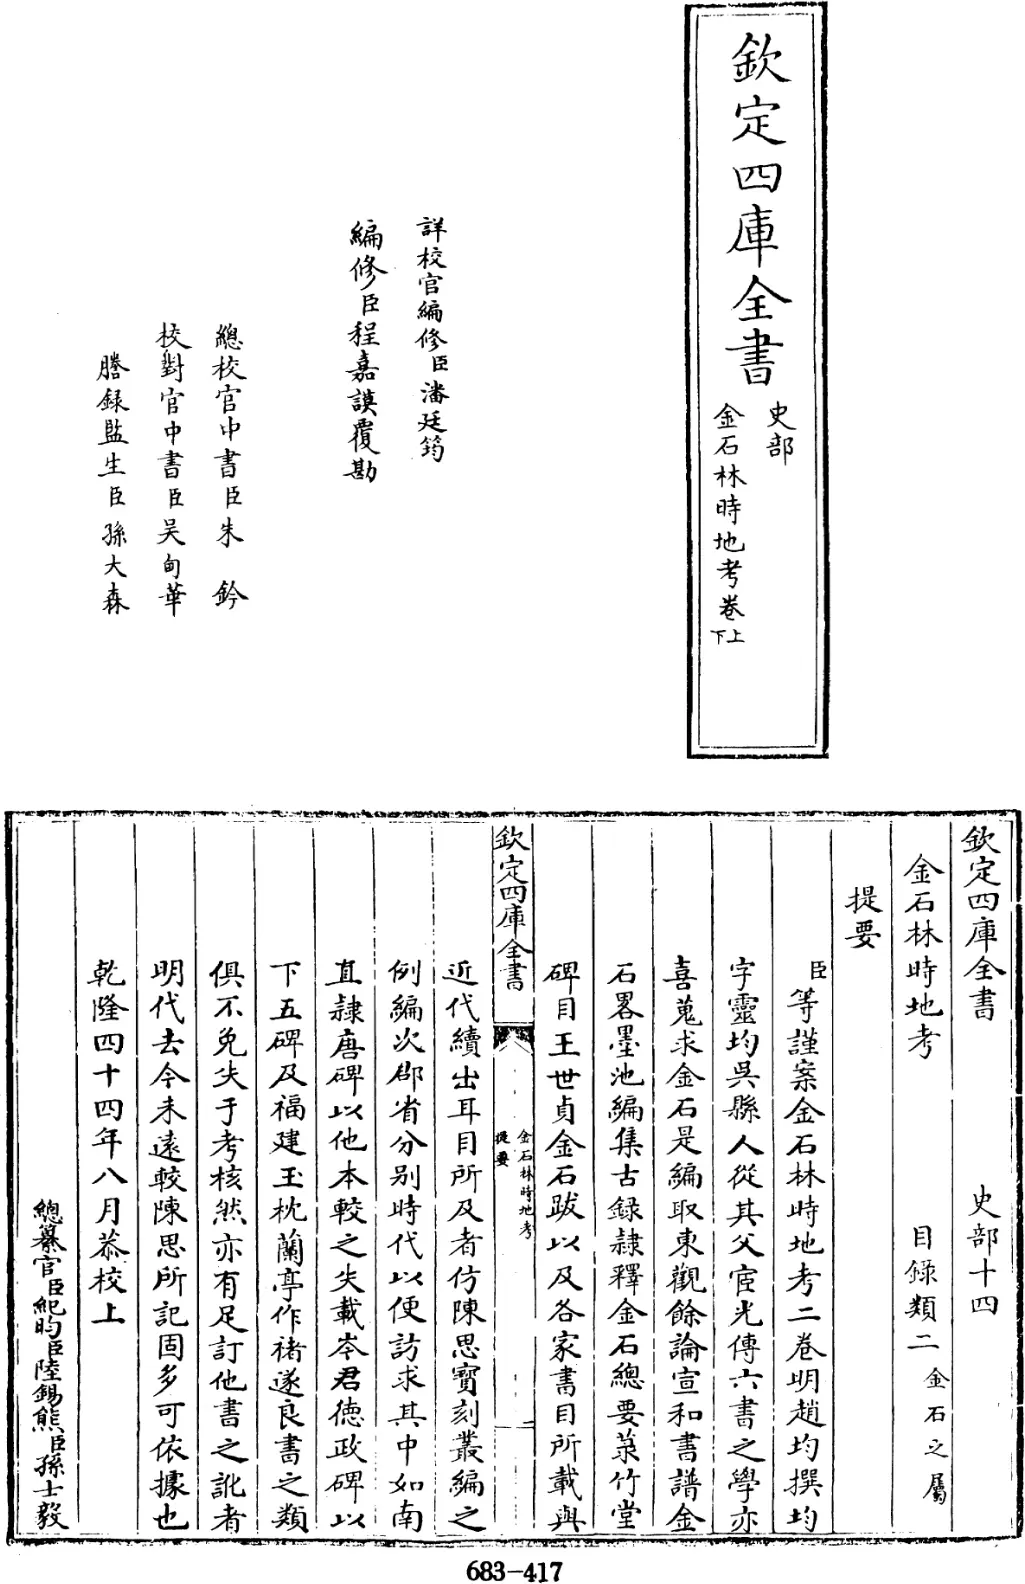 欽定四庫全書
史部
金石林時地考卷上下
詳校官編修臣潘廷筠
編修臣程嘉謨覆勘
總校官中書臣朱鈐
校對官中書臣吴甸華
謄録監生臣孫大森
欽定四庫全書 史部十四
金石林時地考 目録類二金石之屬
提要
臣等謹案金石林時地考二卷明趙均撰均
字靈均吳縣人從其父宧光傳六書之學亦
喜蒐求金石是編取東觀餘論宣和書譜金
石畧墨池編集古録隷釋金石總要菉竹堂
碑目王世貞金石跋以及各家書目所載與
欽定四庫全書
金石林時地考
提要
一
近代續出耳目所及者仿陳思寳刻叢編之
例編次郡省分别時代以便訪求其中如南
直隷唐碑以他本較之失載岑君德政碑以
下五碑及福建玉枕蘭亭作禇遂良書之類
俱不免失于考核然亦有足訂他書之訛者
明代去今未遠較陳思所記固多可依據也
乾隆四十四年八月恭校上
總纂官臣紀昀臣陸錫熊臣孫士毅
683-417